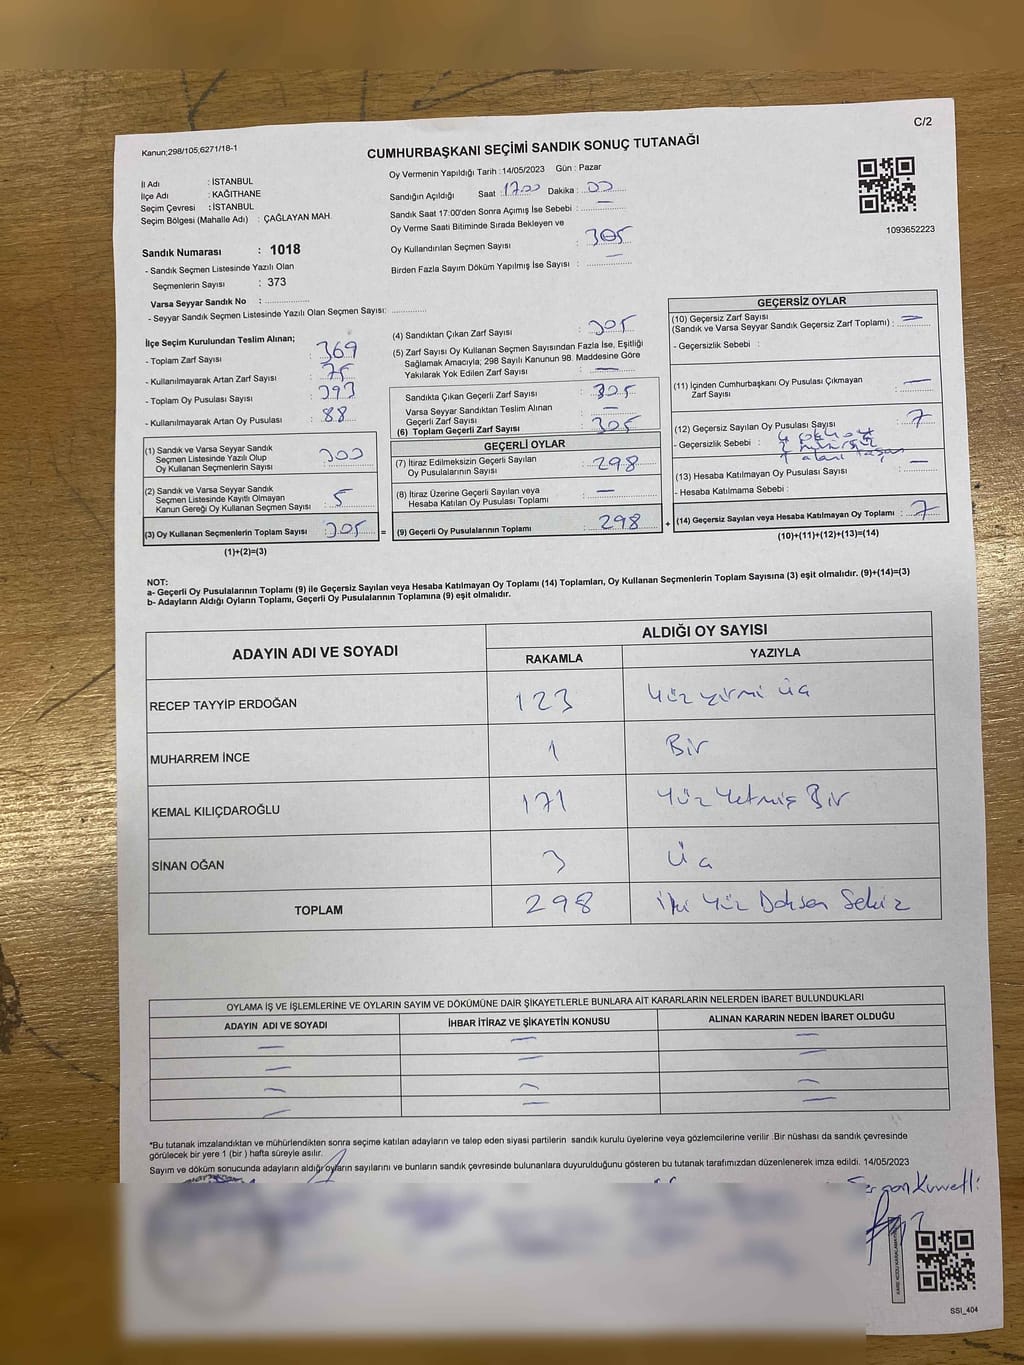 C/2
Kanun;298/105,6271/18-1
CUMHURBAŞKANI SEÇİMİ SANDIK SONUÇ TUTANAĞI
İl Adı : İSTANBUL
İlçe Adı : KAĞITHANE
Seçim Çevresi : İSTANBUL
Seçim Bölgesi (Mahalle Adı) : ÇAĞLAYAN MAH.
Sandık Numarası : 1018
- Sandık Seçmen Listesinde Yazılı Olan
Seçmenlerin Sayısı : 373
Varsa Seyyar Sandık No :
- Seyyar Sandık Seçmen Listesinde Yazılı Olan Seçmen Sayısı:
Oy Vermenin Yapıldığı Tarih : 14/05/2023 Gün : Pazar
Sandığın Açıldığı Saat : 17:00 Dakika : 00
Sandık Saat 17:00'den Sonra Açımış İse Sebebi : —
Oy Verme Saati Bitiminde Sırada Bekleyen ve
Oy Kullandırılan Seçmen Sayısı : 305
Birden Fazla Sayım Döküm Yapılmış İse Sayısı : —
1093652223
İlçe Seçim Kurulundan Teslim Alınan;
- Toplam Zarf Sayısı : 369
- Kullanılmayarak Artan Zarf Sayısı : 75
- Toplam Oy Pusulası Sayısı : 393
- Kullanılmayarak Artan Oy Pusulası : 88
(1) Sandık ve Varsa Seyyar Sandık
Seçmen Listesinde Yazılı Olup
Oy Kullanan Seçmenlerin Sayısı : 300
(2) Sandık ve Varsa Seyyar Sandık
Seçmen Listesinde Kayıtlı Olmayan
Kanun Gereği Oy Kullanan Seçmen Sayısı : 5
(3) Oy Kullanan Seçmenlerin Toplam Sayısı : 305
(1)+(2)=(3)
(4) Sandıktan Çıkan Zarf Sayısı : 305
(5) Zarf Sayısı Oy Kullanan Seçmen Sayısından Fazla İse, Eşitliği
Sağlamak Amacıyla; 298 Sayılı Kanunun 98. Maddesine Göre
Yakılarak Yok Edilen Zarf Sayısı : —
Sandıkta Çıkan Geçerli Zarf Sayısı : 305
Varsa Seyyar Sandıktan Teslim Alınan
Geçerli Zarf Sayısı : —
(6) Toplam Geçerli Zarf Sayısı : 305
GEÇERLİ OYLAR
(7) İtiraz Edilmeksizin Geçerli Sayılan
Oy Pusulalarının Sayısı : 298
(8) İtiraz Üzerine Geçerli Sayılan veya
Hesaba Katılan Oy Pusulası Toplamı : —
= (9) Geçerli Oy Pusulalarının Toplamı : 298 +
GEÇERSİZ OYLAR
(10) Geçersiz Zarf Sayısı
(Sandık ve Varsa Seyyar Sandık Geçersiz Zarf Toplamı) : —
- Geçersizlik Sebebi :
(11) İçinden Cumhurbaşkanı Oy Pusulası Çıkmayan
Zarf Sayısı : —
(12) Geçersiz Sayılan Oy Pusulası Sayısı : 7
- Geçersizlik Sebebi :
(13) Hesaba Katılmayan Oy Pusulası Sayısı : —
- Hesaba Katılmama Sebebi :
(14) Geçersiz Sayılan veya Hesaba Katılmayan Oy Toplamı : 7
(10)+(11)+(12)+(13)=(14)
NOT:
a- Geçerli Oy Pusulalarının Toplamı (9) ile Geçersiz Sayılan veya Hesaba Katılmayan Oy Toplamı (14) Toplamları, Oy Kullanan Seçmenlerin Toplam Sayısına (3) eşit olmalıdır. (9)+(14)=(3)
b- Adayların Aldığı Oyların Toplamı, Geçerli Oy Pusulalarının Toplamına (9) eşit olmalıdır.
ADAYIN ADI VE SOYADI ALDIĞI OY SAYISI
RAKAMLA YAZIYLA
RECEP TAYYİP ERDOĞAN 123 Yüz yirmi üç
MUHARREM İNCE 1 Bir
KEMAL KILIÇDAROĞLU 171 Yüz Yetmiş Bir
SİNAN OĞAN 3 Üç
TOPLAM 298 İki Yüz Doksan Sekiz
OYLAMA İŞ VE İŞLEMLERİNE VE OYLARIN SAYIM VE DÖKÜMÜNE DAİR ŞİKAYETLERLE BUNLARA AİT KARARLARIN NELERDEN İBARET BULUNDUKLARI
ADAYIN ADI VE SOYADI İHBAR İTİRAZ VE ŞİKAYETİN KONUSU ALINAN KARARIN NEDEN İBARET OLDUĞU
— — —
— — —
— — —
— — —
*Bu tutanak imzalandıktan ve mühürlendikten sonra seçime katılan adayların ve talep eden siyasi partilerin sandık kurulu üyelerine veya gözlemcilerine verilir .Bir nüshası da sandık çevresinde
görülecek bir yere 1 (bir ) hafta süreyle asılır.
Sayım ve döküm sonucunda adayların aldığı oyların sayılarını ve bunların sandık çevresinde bulunanlara duyurulduğunu gösteren bu tutanak tarafımızdan düzenlenerek imza edildi. 14/05/2023
SSI_404